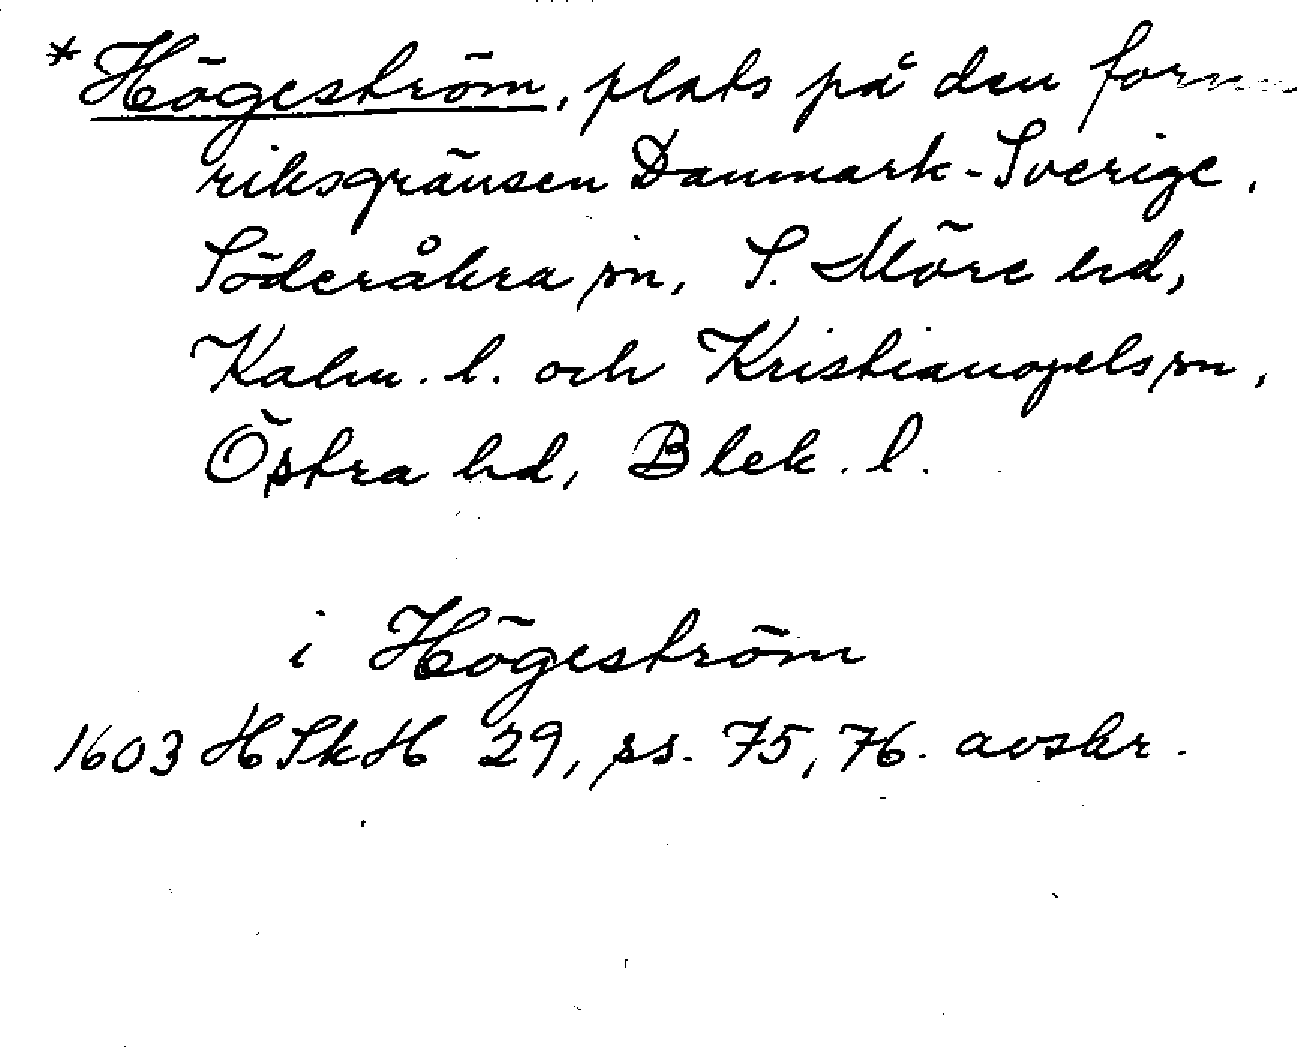 *Högeström, plats på den
riksgränsen Danmark-Sverige,
Söderåkra sn, S. Möre hd,
Kalm. l. och Kristianopels sn,
Östra hd, Blek. l.
i Högeström
1603 HSkH 29, ss. 75, 76. avskr.